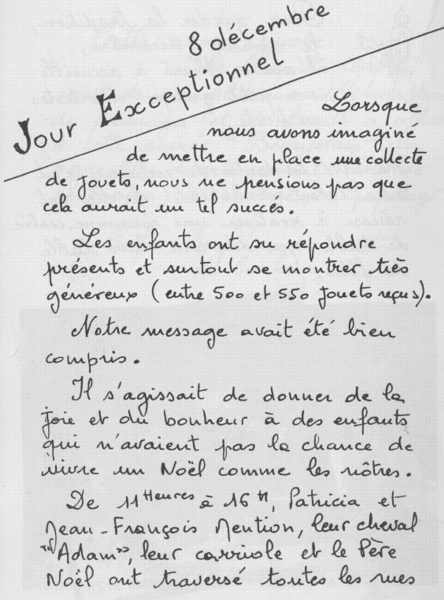 8 décembre
Jour Exceptionnel
Lorsque
nous avons imaginé
de mettre en place une collecte
de jouets, nous ne pensions pas que
cela aurait un tel succés.
Les enfants ont su répondre
présents et surtout se montrer très
généreux (entre 500 et 550 jouets reçus).
Notre message avait été bien
compris.
Il s'agissait de donner de la
joie et du bonheur à des enfants
qui n'avaient pas la chance de
vivre un Noël comme les nôtres.
De 11 Heures à 16 H, Patricia et
Jean-François Mention, leur cheval
"Adam", leur carriole et le Père
Noël ont traversé toutes les rues